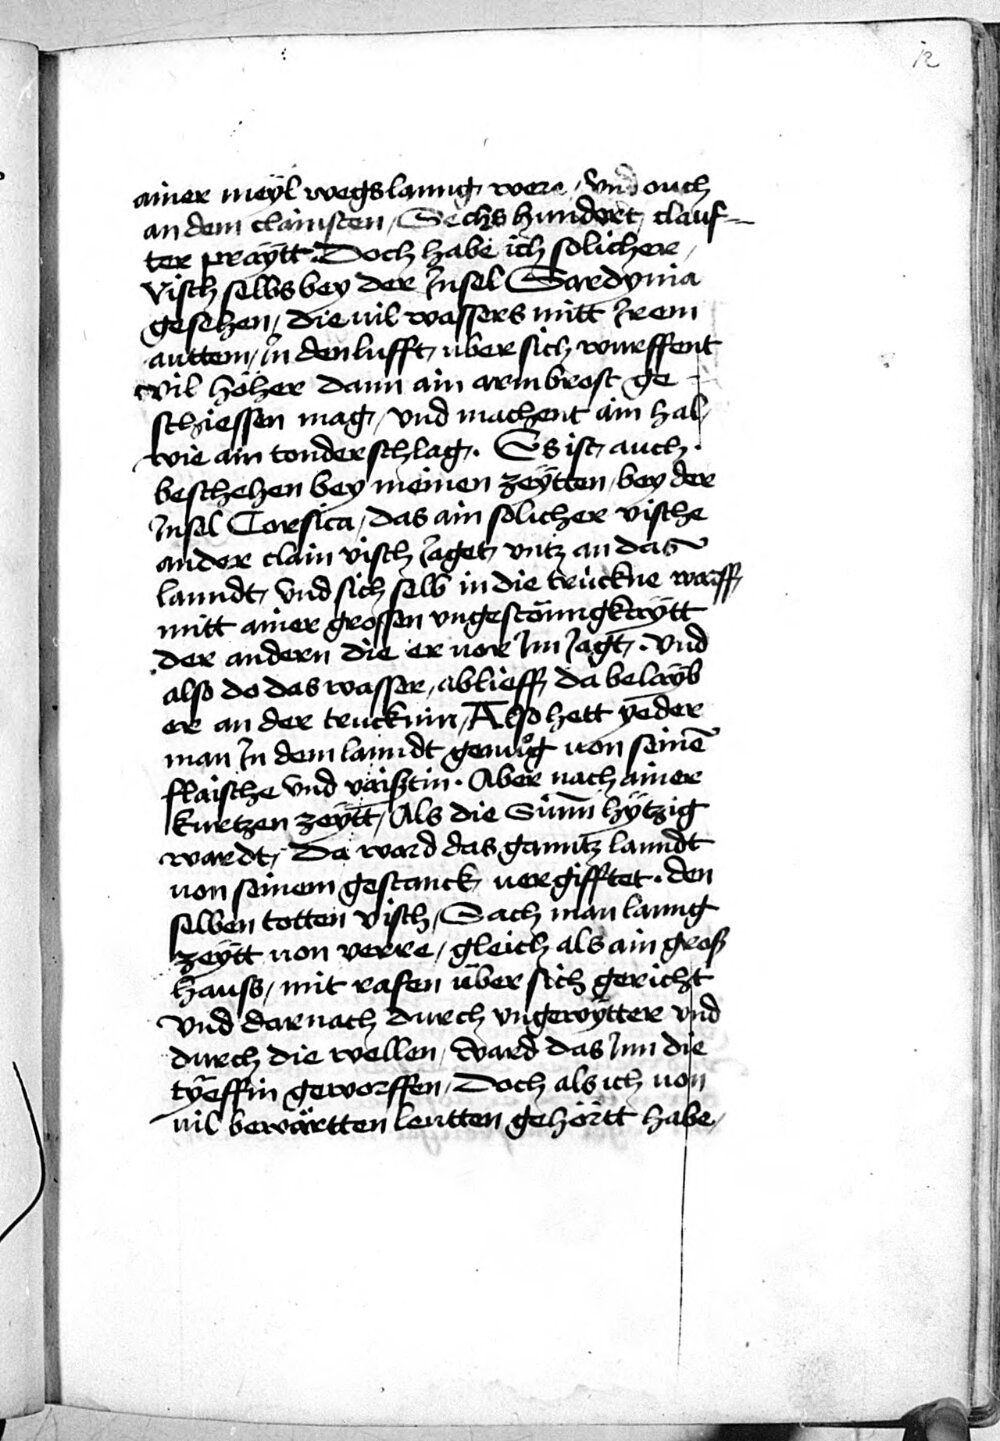 12
ainer meyl wegs lanng were / vnd ouch
an dem clainisten / Sechs hundert clauf=
ter praytt. Doch habe ich solicher
visch selbs bey der Jnsel Sardynia
gesehen / die vil wassers mitt Jrem
auttem / Jn den lufft über sich wurffent
vil höher dann ain armbrost ge-
schiessen mag / vnd machent ain hal
wie ain tonderschlag. Es ist auch
beschehen bey meinen zeytten / bey der
Jnsel Corsica / das ain solicher vische
ander clain visch Jaget vntz an das
lanndt vnd sich selb in die trückne warff
mitt ainer grossen vngestömigkaytt
der andern die er vor Jm Jagt. Vnd
also do das wasser ablieff da belayb
er an der trucknin / Also hett yeder
man Jn dem lanndt genuog von seinē
flaische vnd vaißtin. Aber nach ainer
kurtzen zeytt / Als die Sünn hytzig
wardt / Da ward das ganntz lanndt
von seinem gestanck vergifftet. den
selben totten visch / Sach man lanng
zeytt von verre / gleich als ain groß
hauß / mit rafen über sich gericht
vnd darnach durch vngewytter vnd
durch die wellen / ward das Jnn die
tyeffin geworffen / Doch als ich von
vil bewärtten leutten gehörtt habe /